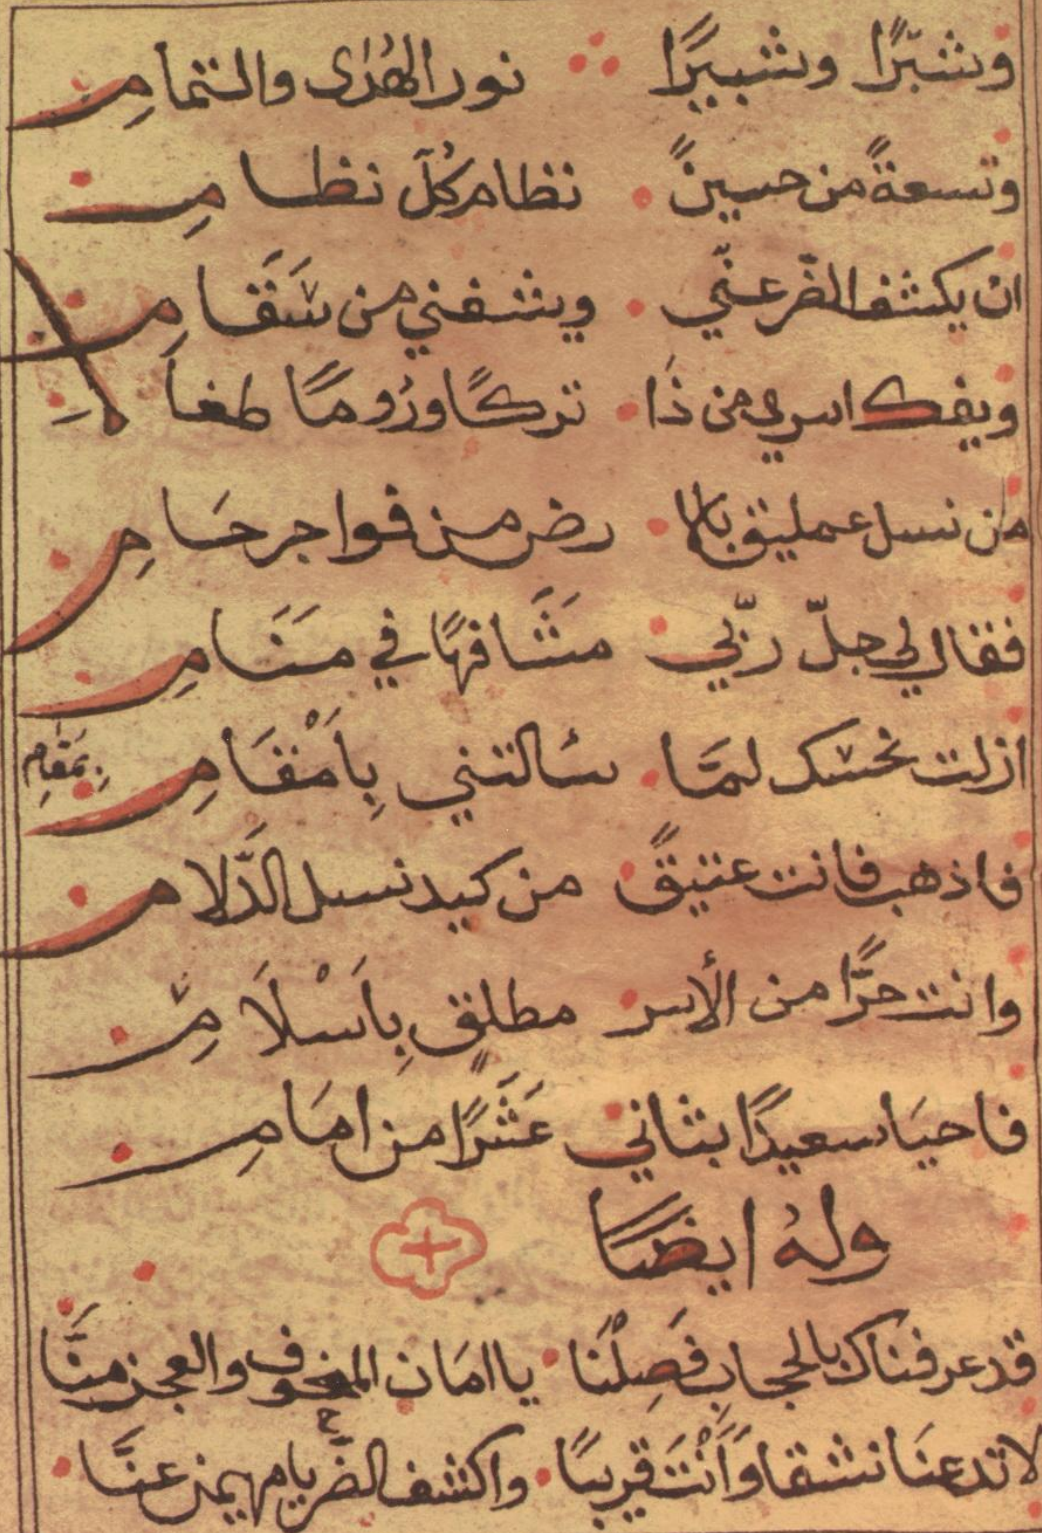 وشبّرًا وشبيرًا نور الهُدٰى والتمامِ
وتسعةً من حسينً نظام كُلّ نظامِ
انْ يكشف الضّر عنّي ويشفني من سَقَامِ
ويفك اسري من ذَا تركًا ورُومًا طغاِ
من نسل عمليق بالا رض من فواجر حَامِ
فقال لي جلّ ربّي مَشَافهًا في مَنَامِ
ازلت نحسك لمَّا سالتني بِاَمْقَامِ بمَقامِ
فاذهب فانت عتيقً من كيد نسل الدَّلام
وانت حرًّا من الأسر مطلقٍ بِاَسْلَامِ
فاحيَا سعيدًا بثاني عَشَرًا من امَامِ
ولهُ ايضًا
قد عرفناك بالحجاب فَصِلْنَا يا امَان المخوف والعجز منَّا
لا تدعنَا نشقا وَاَنْتَ قريبًا واكشف الضرّ يا مهيمن عنَّا